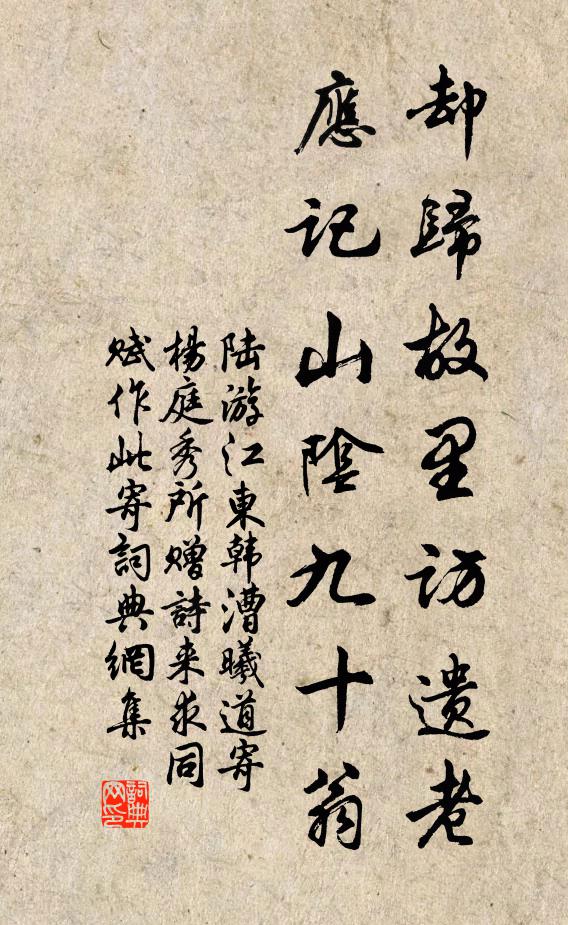 却歸故里訪遺老
應記山陰九十翁
陸游江東韓漕曦道寄
楊庭秀所贈詩来求同
赋作此寄詞典網集
詞典
网印